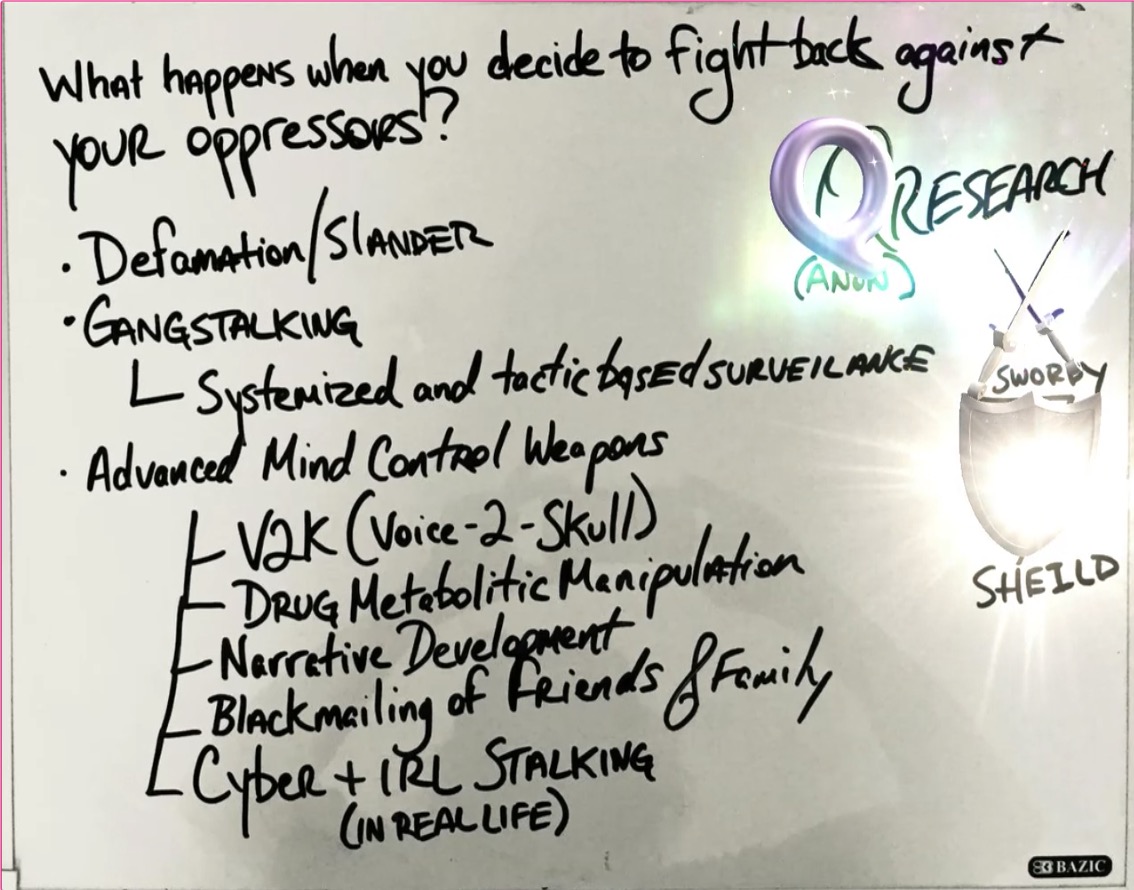 What happens when you decide to fight back against
your oppressors?
Q RESEARCH
(ANON)
• Defamation/Slander
• GANGSTALKING
Systemized and tactic based SURVEILANCE
SWORDY
SHEILD
• Advanced Mind Control Weapons
V2K (Voice-2-Skull)
DRUG Metabolitic Manipulation
Narrative Development
Blackmailing of Friends & Family
Cyber + IRL STALKING
(IN REAL LIFE)
BAZIC